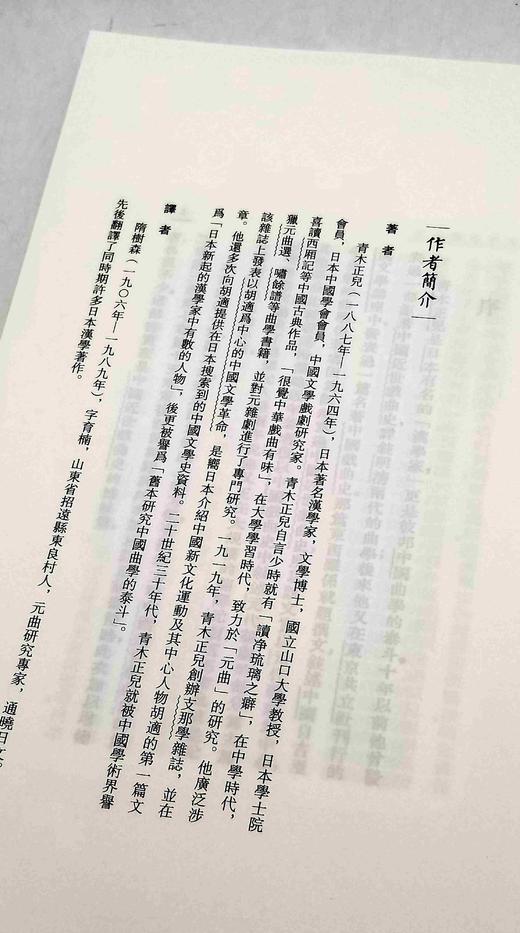 作者簡介
著者
青木正兒（一八八七年—一九六四年），日本著名漢學家，文學博士，國立山口大學教授，日本學士院
會員，日本中國學會會員，中國文學戲劇研究家。青木正兒自言少時就有「讀净琉璃之癖」，在中學時代，
喜讀西厢記等中國古典作品，「很覺中華戲曲有味」，在大學學習時代，致力於「元曲」的研究。他廣泛涉
獵元曲選、嘯餘譜等曲學書籍，並對元雜劇進行了專門研究。一九一九年，青木正兒創辦支那學雜誌，並在
該雜誌上發表以胡適爲中心的中國文學革命，是嚮日本介紹中國新文化運動及其中心人物胡適的第一篇文
章。他還多次向胡適提供在日本搜索到的中國文學史資料。二十世紀三十年代，青木正兒就被中國學術界譽
爲「日本新起的漢學家中有數的人物」，後更被譽爲「舊本研究中國曲學的泰斗」。
譯者
隋樹森（一九〇六年—一九八九年），字育楠，山東省招遠縣東良村人，元曲研究專家，通曉日文。
先後翻譯了同時期許多日本漢學著作。